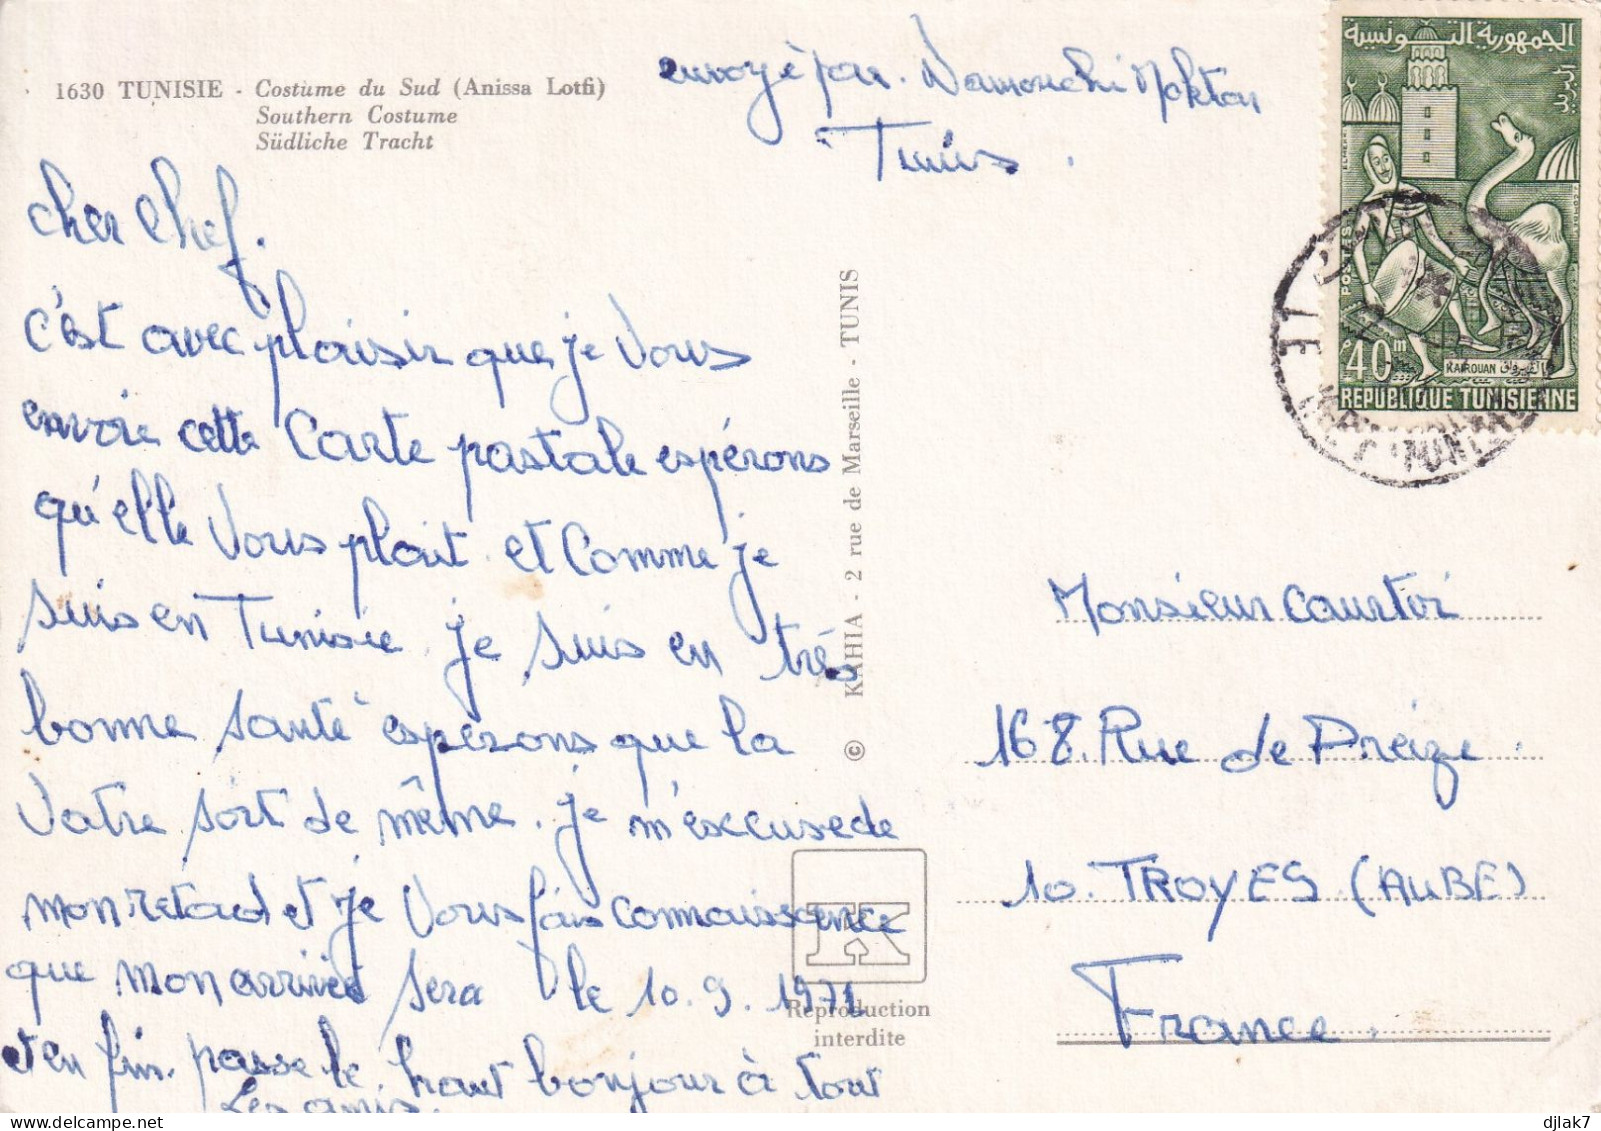 1630 TUNISIE - Costume du Sud (Anissa Lotfi)
Southern Costume
Südliche Tracht
envoyé par. Damouchi Moktar
Tunis.
الجمهورية التونسية
البريد
POSTES
40m
KAIROUAN القيروان
REPUBLIQUE TUNISIENNE
cher chef.
c'est avec plaisir que je Vous
envoie cette Carte pastale espérons
qu'elle Vous plait. et Comme je
suis en Tunisie. je suis en très
bonne santé esperons que la
Votre sort de même. je m'excuse de
mon retad et je Vous fais connaissance
que mon arrivée sera le 10.9.1971
et en fin. passe le. haut bonjour à tout
Les amis.
© KAHIA - 2 rue de Marseille - TUNIS
K
Reproduction
interdite
Monsieur Courtoi
168. Rue de Preize.
10. TROYES (AUBE)
France.
djlak7